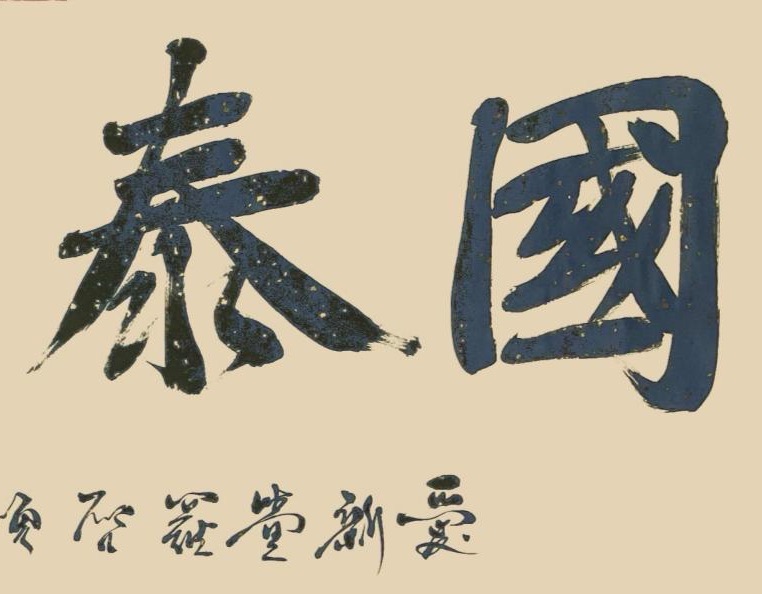 國泰
愛新覺羅啓